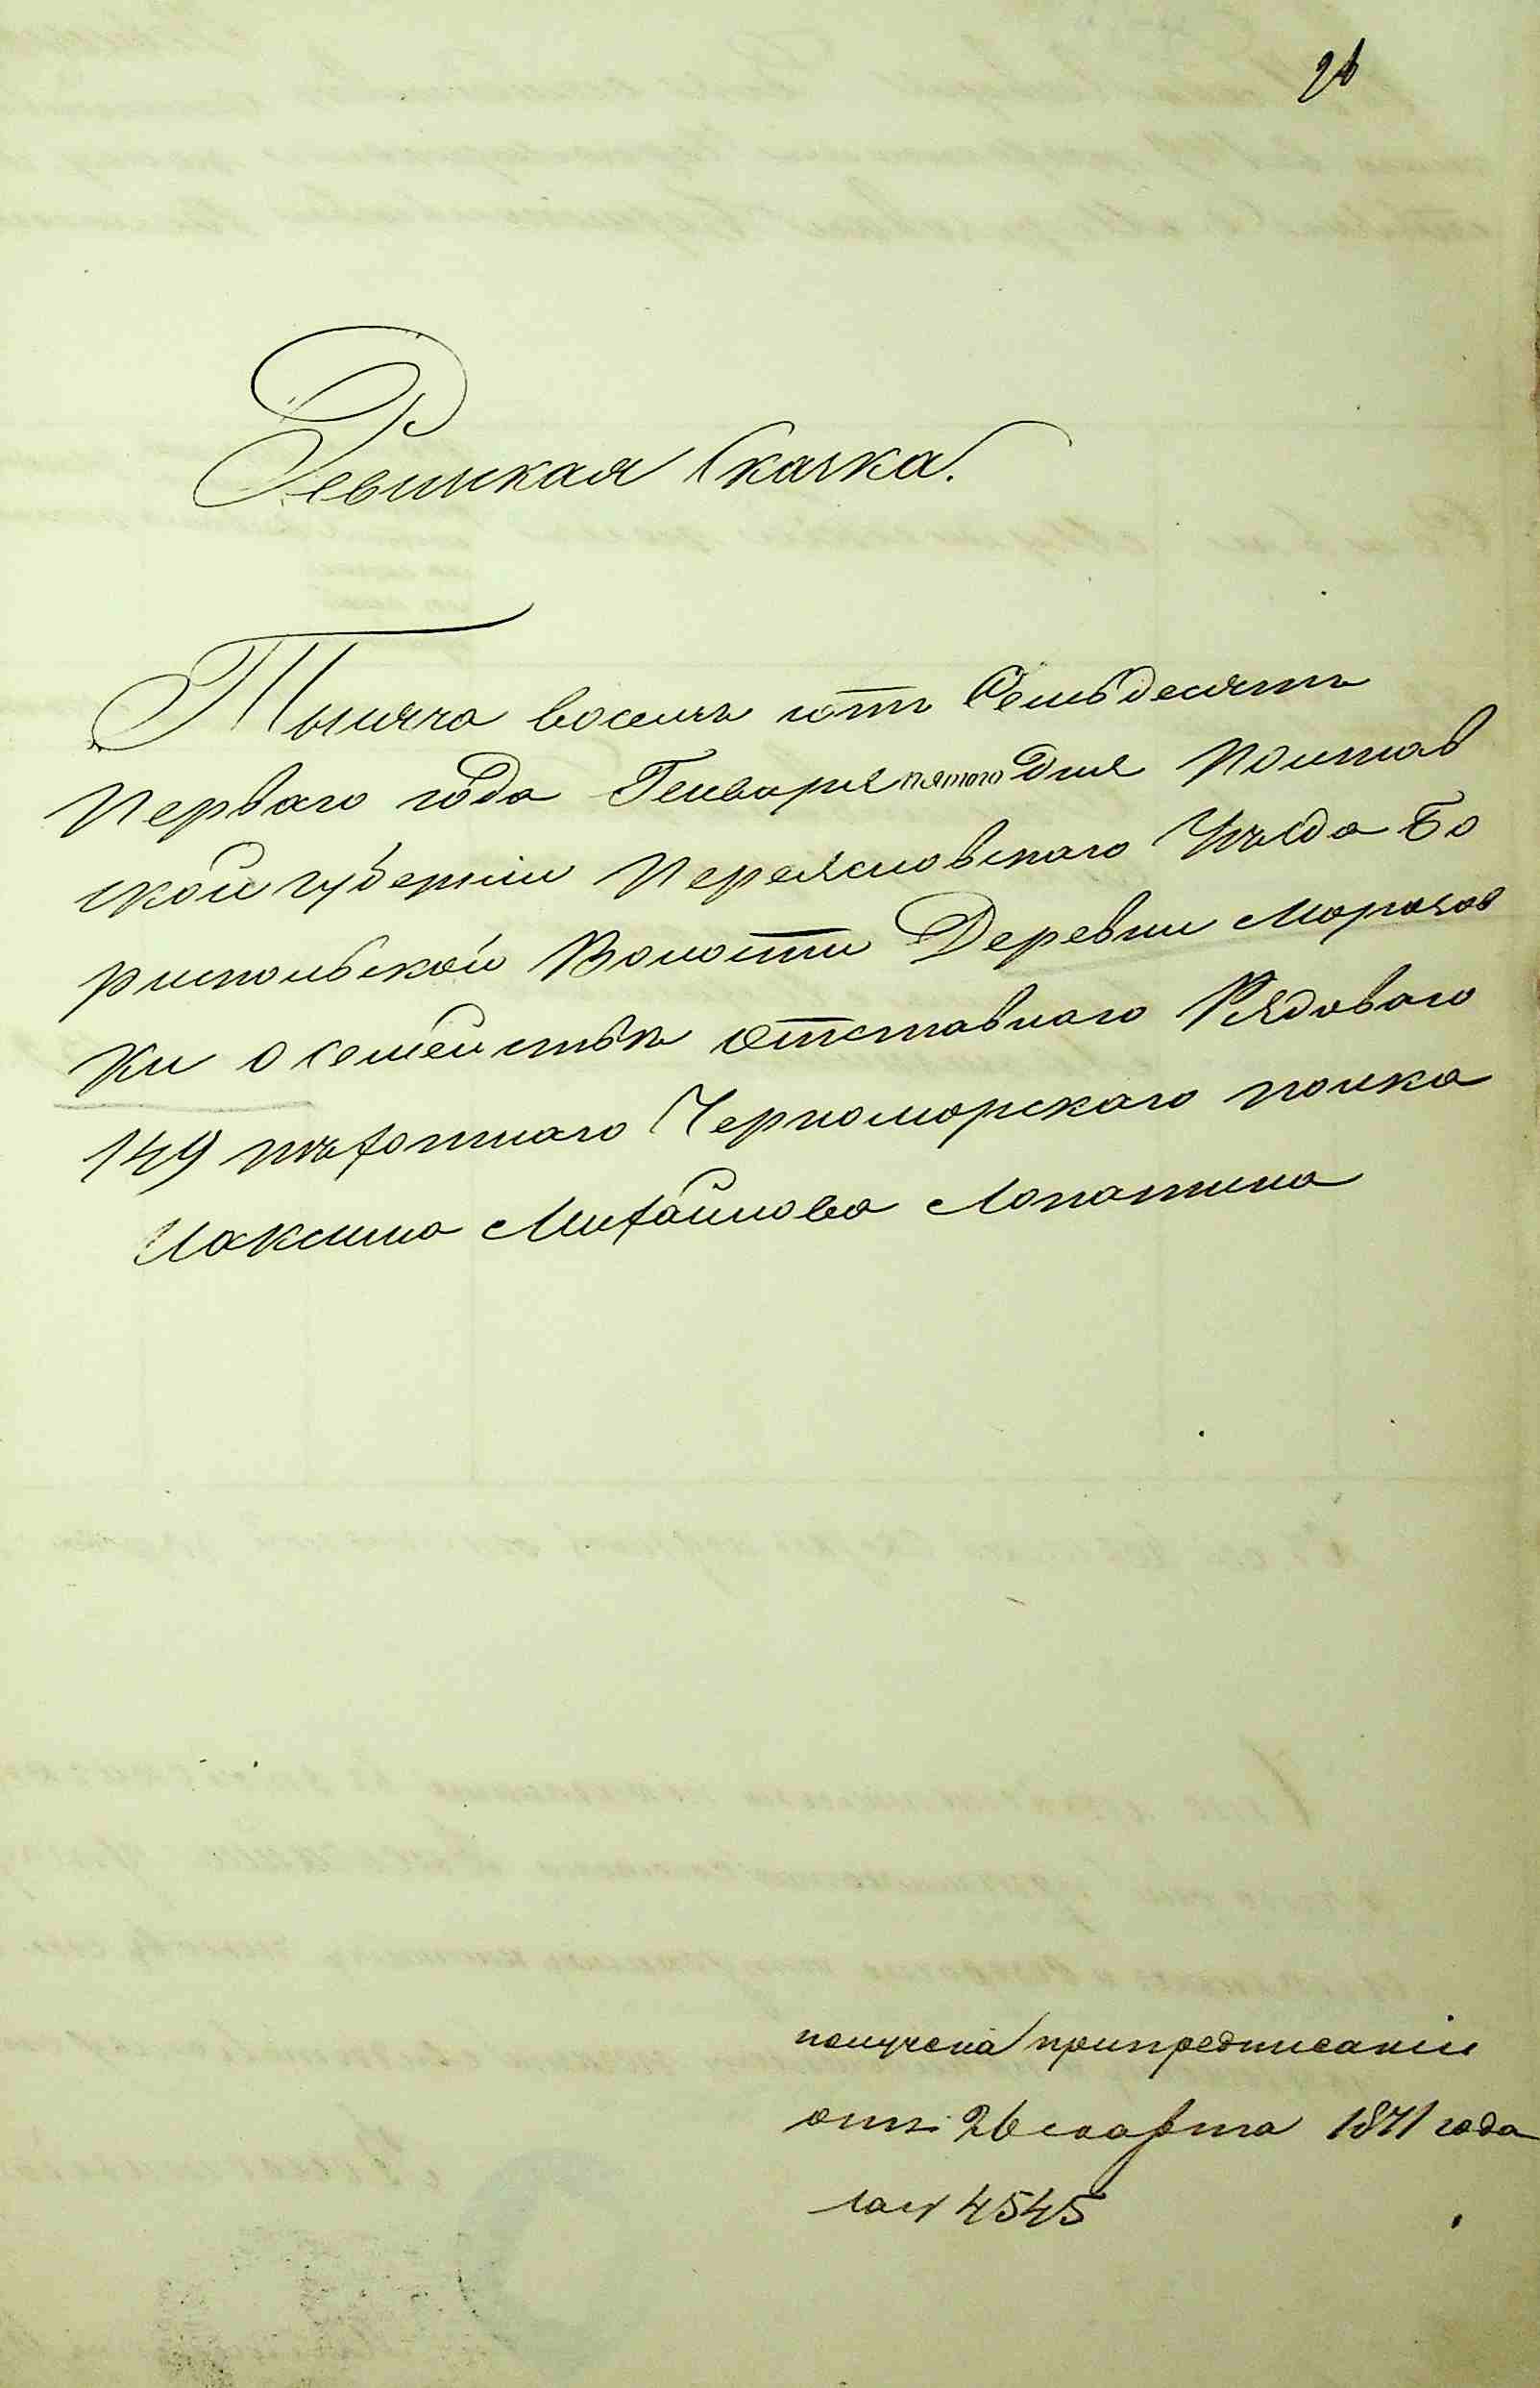 26
Ревизская Сказка.
Тысяча восемь сотъ Семьдесятъ
Перваго года Генваря пятого дня Полтав
ской губерніи Переяславскаго Уѣзда Бо
риспольской Волости Деревни Морозов
ки о семействѣ отставнаго Рядоваго
149 пѣхотнаго Черноморскаго полка
Максима Михайлова Лопатина
получена припредписаніи
отъ 26 марта 1871 года
4545